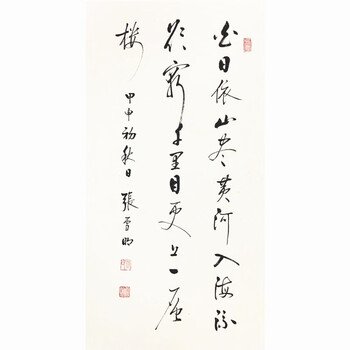 白日依山尽黄河入海流
欲窮千里目更上一层
楼
甲申初秋日 張